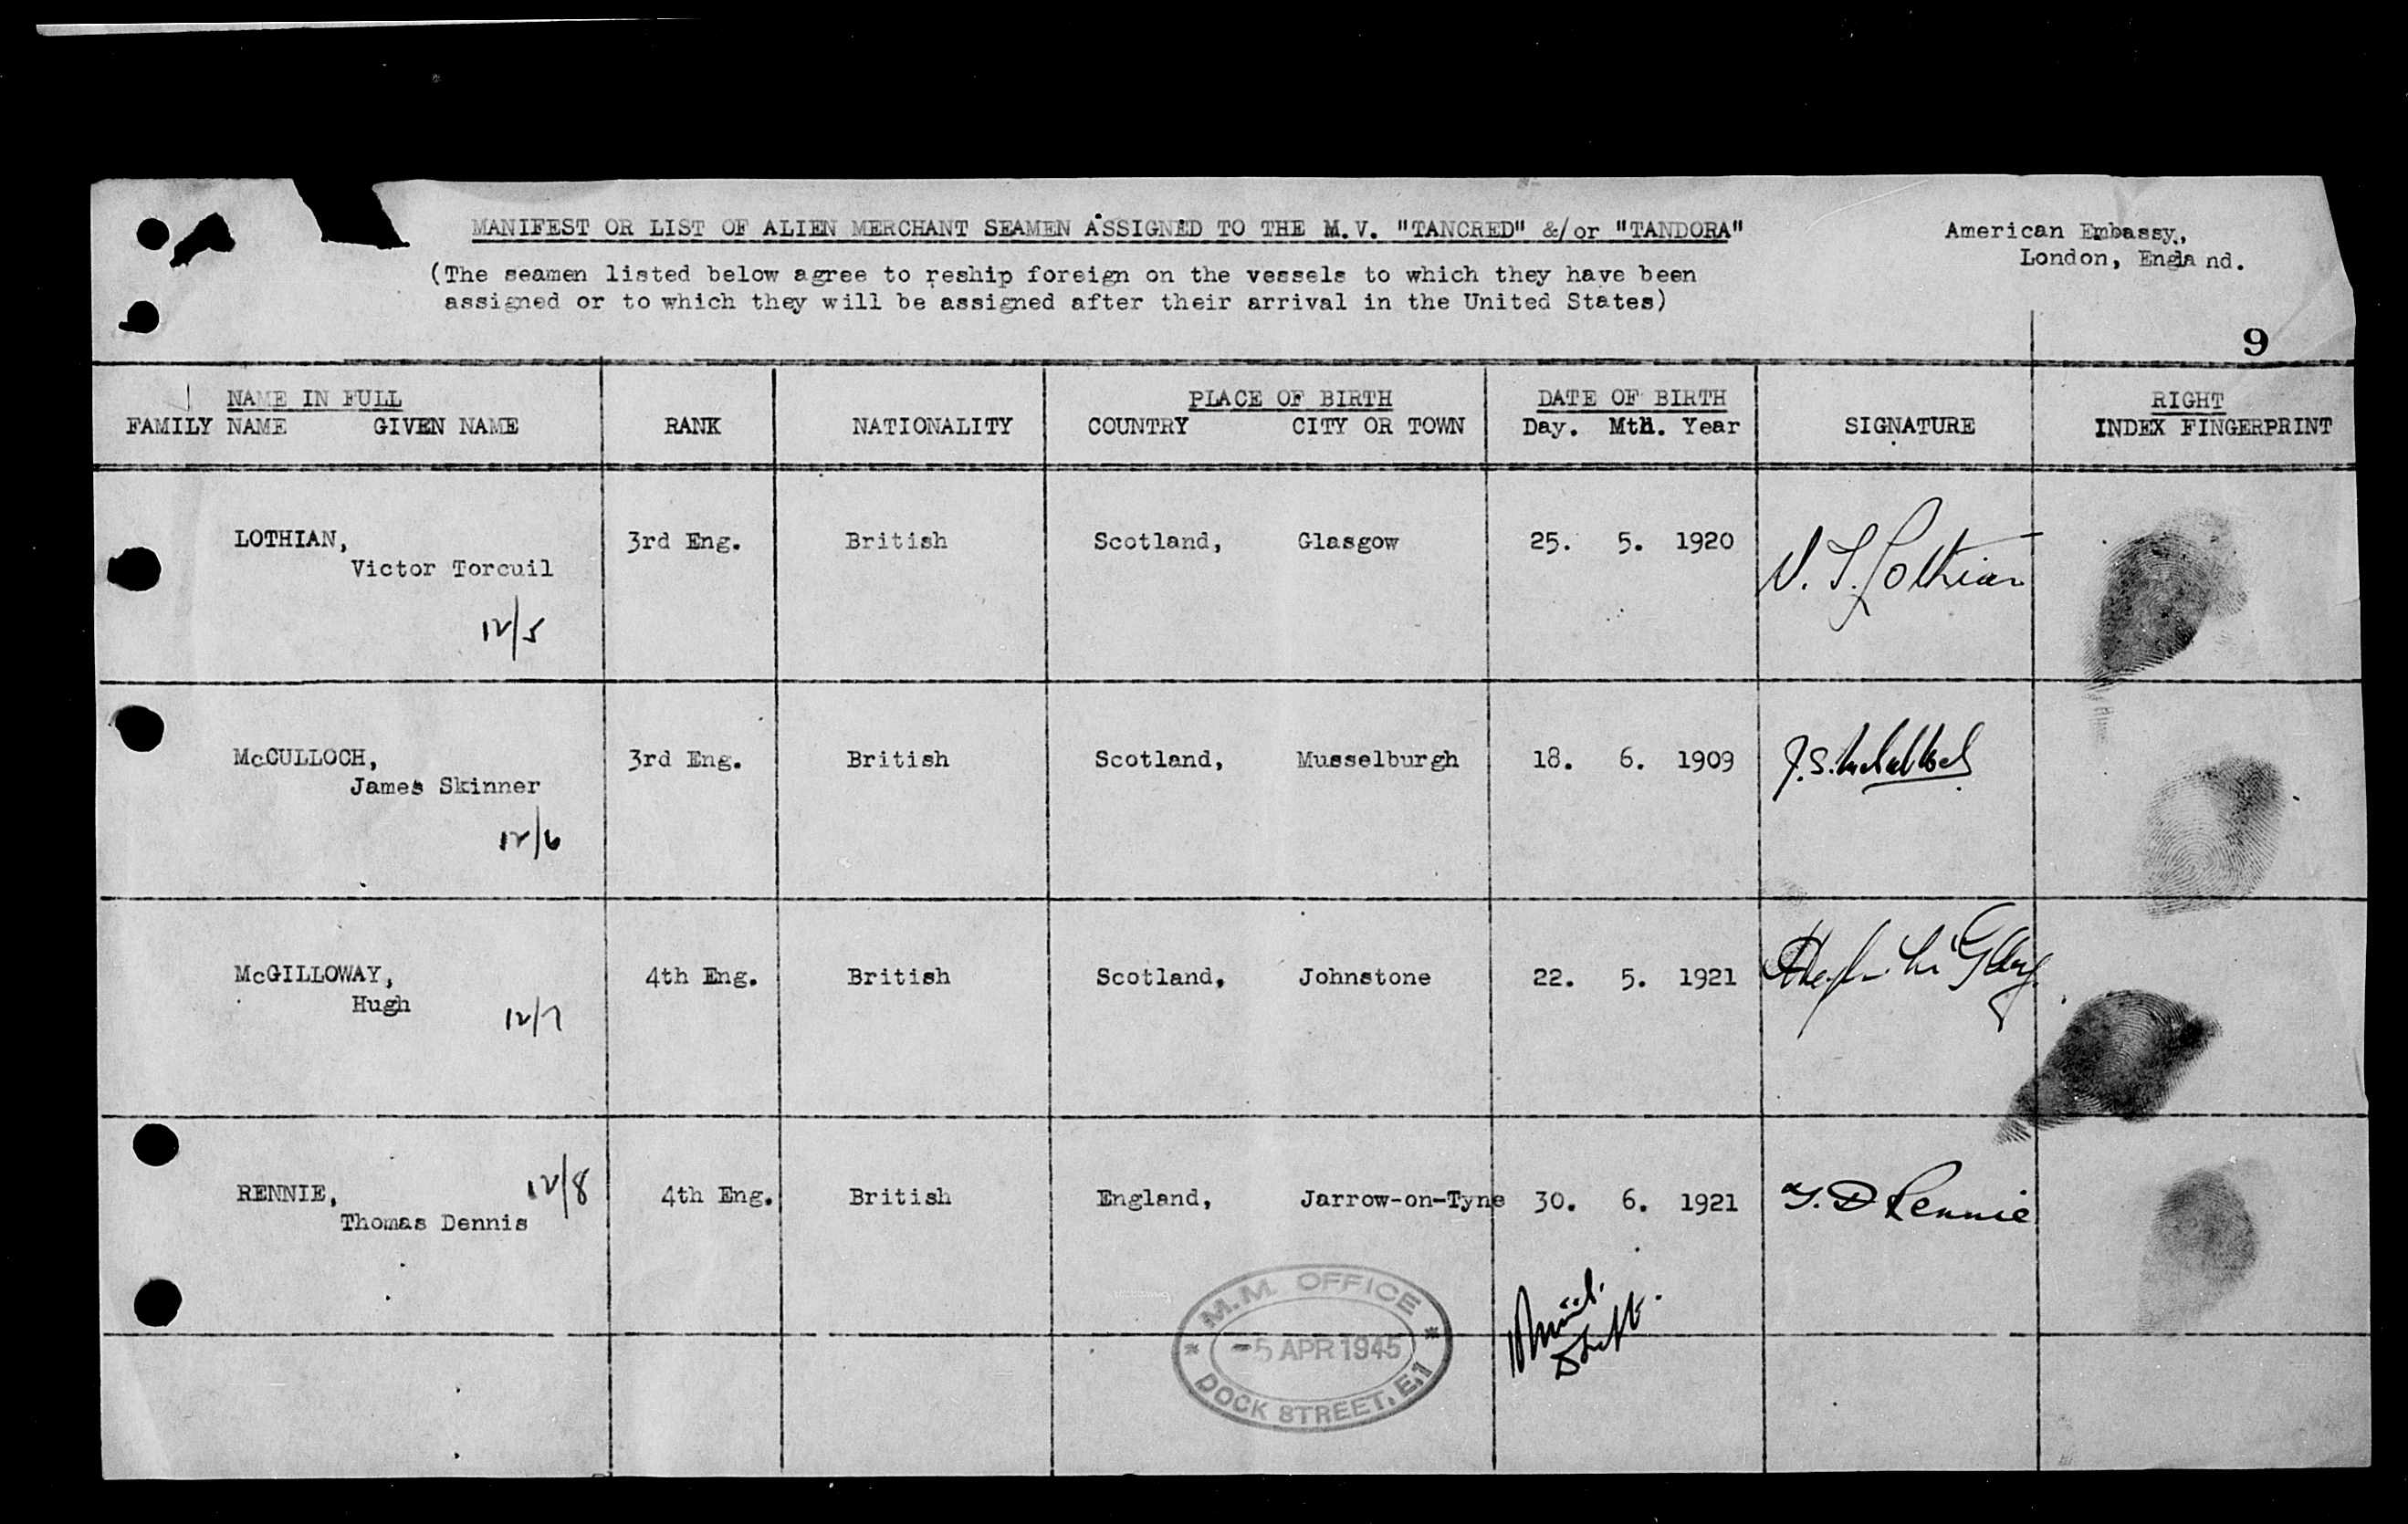 MANIFEST OR LIST OF ALIEN MERCHANT SEAMEN ASSIGNED TO THE M.V. "TANCRED" &/or "TANDORA"
American Embassy,
London, England.
(The seamen listed below agree to reship foreign on the vessels to which they have been
assigned or to which they will be assigned after their arrival in the United States)
9
NAME IN FULL PLACE OF BIRTH DATE OF BIRTH RIGHT
FAMILY NAME GIVEN NAME RANK NATIONALITY COUNTRY CITY OR TOWN Day. Mth. Year SIGNATURE INDEX FINGERPRINT
LOTHIAN, 3rd Eng. British Scotland, Glasgow 25. 5. 1920 V. T. Lothian
Victor Torcuil
12/5
McCULLOCH, 3rd Eng. British Scotland, Musselburgh 18. 6. 1909 J.S. McCulloch
James Skinner
12/6
McGILLOWAY, 4th Eng. British Scotland, Johnstone 22. 5. 1921
Hugh
12/7
RENNIE, 12/8 4th Eng. British England, Jarrow-on-Tyne 30. 6. 1921 T. D Rennie
Thomas Dennis
M.M. OFFICE
-5 APR 1945
DOCK STREET, E.1